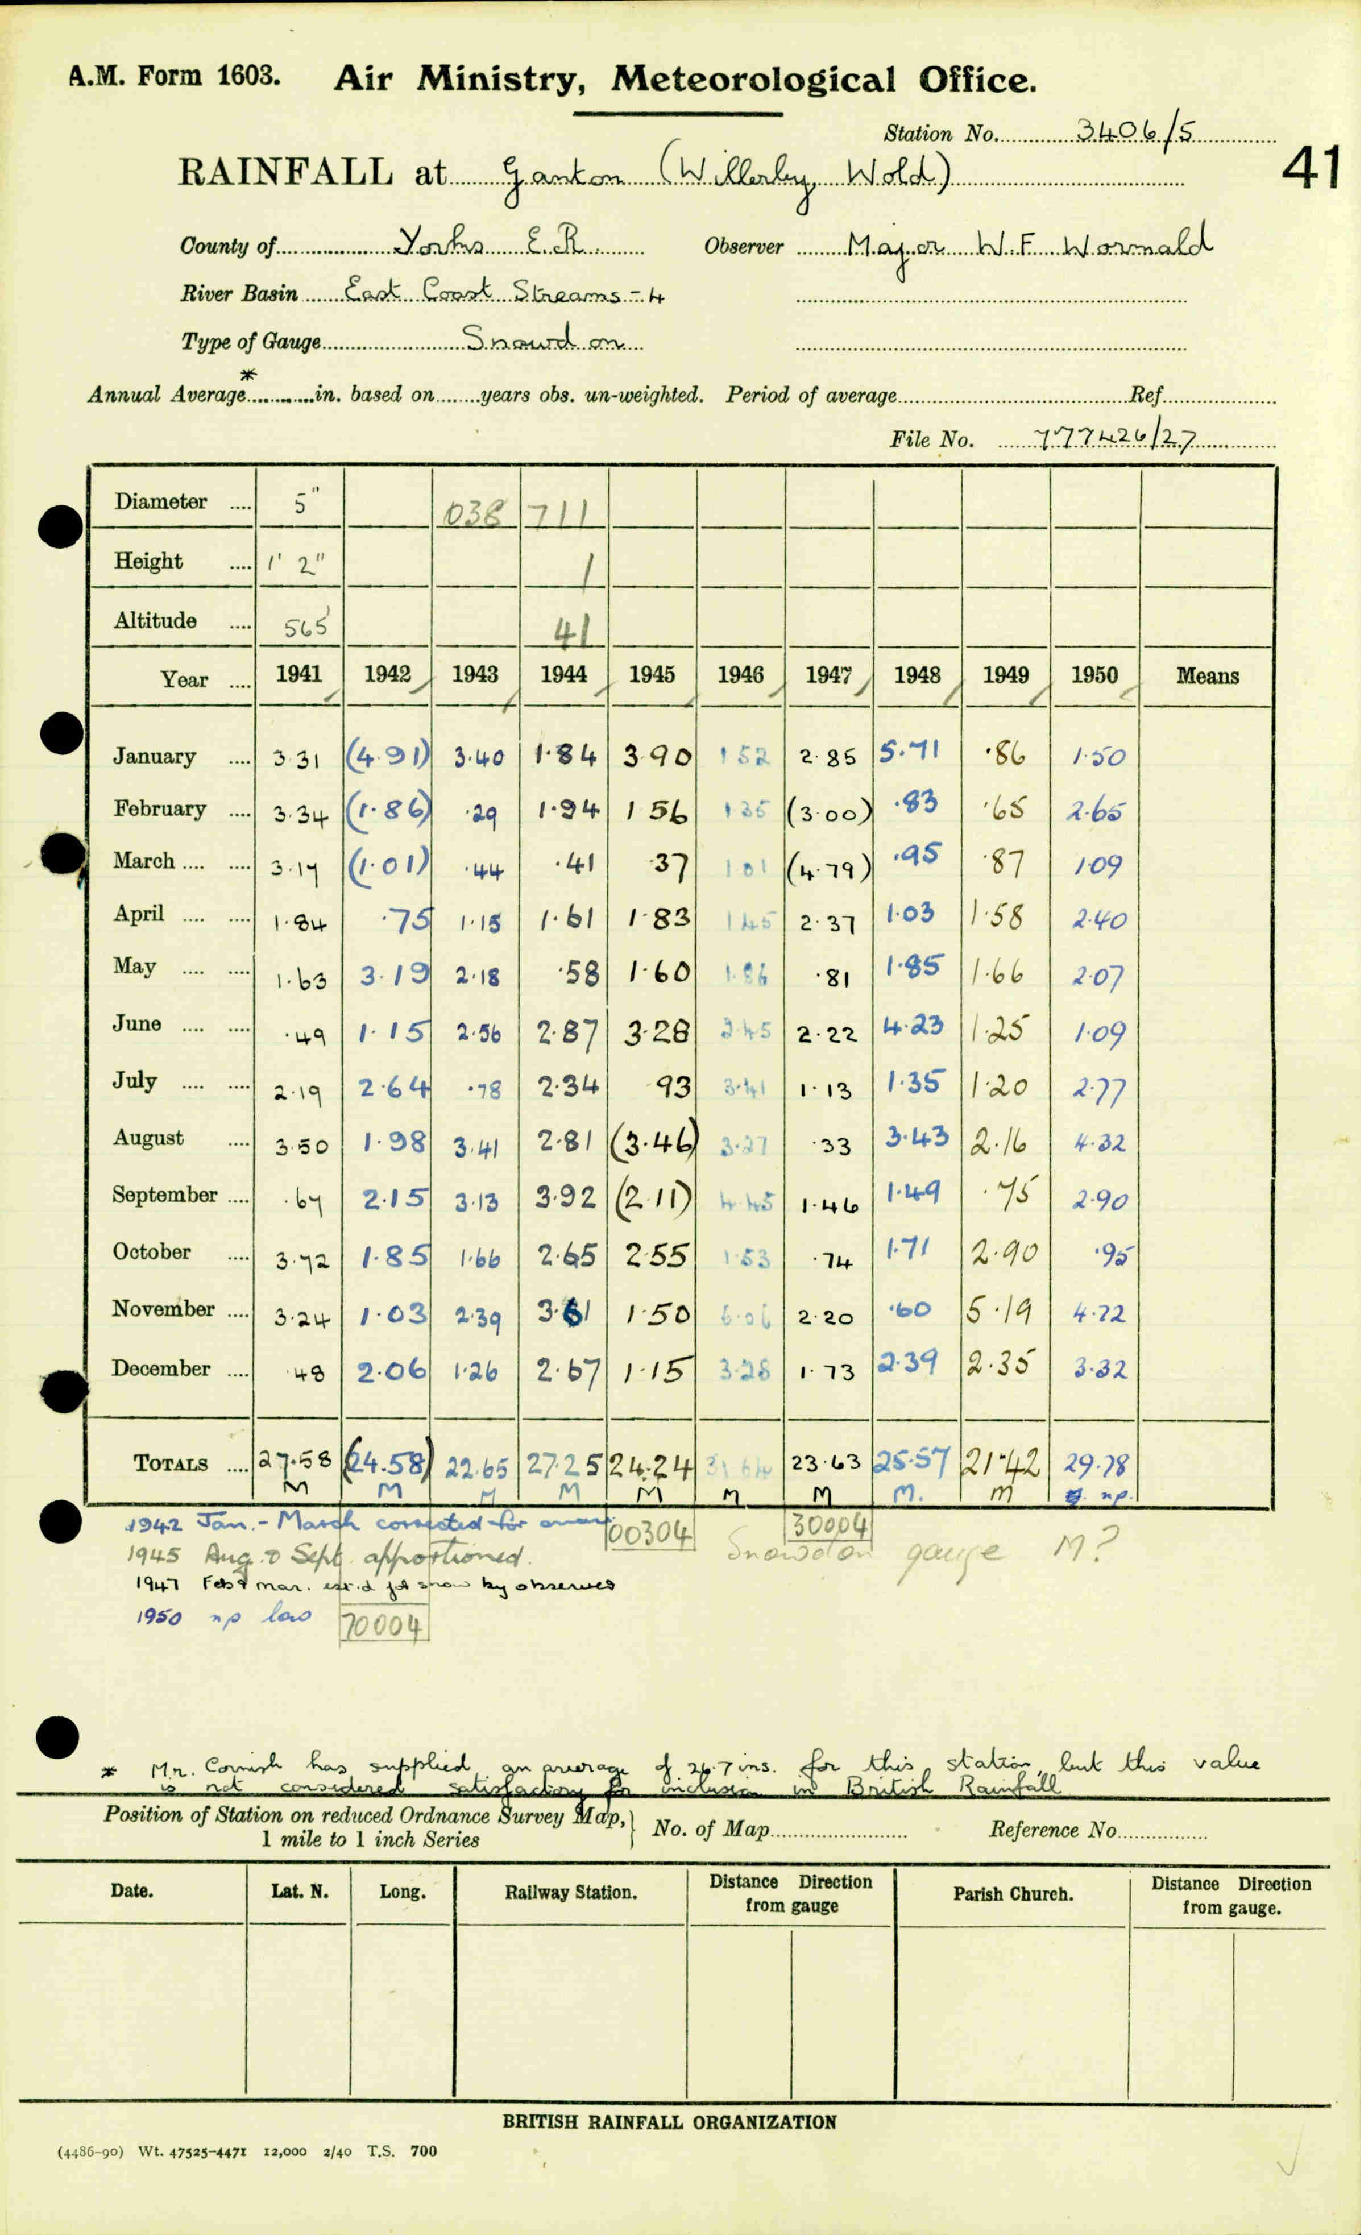 A.M. Form 1603. Air Ministry, Meteorological Office.
Station No. 3406/5
41
RAINFALL at Ganton (Willerby Wold)
County of Yorks E.R. Observer Major W.F. Wormald
River Basin East Coast Streams - 4
Type of Gauge Snowdon
Annual Average * in. based on years obs. un-weighted. Period of average Ref.
File No. 777426/27
Diameter .... 5" 038 711
Height .... 1' 2" 1
Altitude .... 565' 41
Year .... 1941 1942 1943 1944 1945 1946 1947 1948 1949 1950 Means
January .... 3.31 (4.91) 3.40 1.84 3.90 1.52 2.85 5.71 .86 1.50
February .... 3.34 (1.86) .29 1.94 1.56 1.35 (3.00) .83 .65 2.65
March .... .... 3.17 (1.01) .44 .41 .37 1.01 (4.79) .95 .87 1.09
April .... .... 1.84 .75 1.15 1.61 1.83 1.45 2.37 1.03 1.58 2.40
May .... .... 1.63 3.19 2.18 .58 1.60 1.86 .81 1.85 1.66 2.07
June .... .... .49 1.15 2.56 2.87 3.28 2.45 2.22 4.23 1.25 1.09
July .... .... 2.19 2.64 .78 2.34 .93 3.41 1.13 1.35 1.20 2.77
August .... 3.50 1.98 3.41 2.81 (3.46) 3.27 .33 3.43 2.16 4.32
September .... .67 2.15 3.13 3.92 (2.11) 4.45 1.46 1.49 .75 2.90
October .... 3.72 1.85 1.66 2.65 2.55 1.53 .74 1.71 2.90 .95
November .... 3.24 1.03 2.39 3.61 1.50 6.06 2.20 .60 5.19 4.72
December .... .48 2.06 1.26 2.67 1.15 3.28 1.73 2.39 2.35 3.32
TOTALS .... 27.58 (24.58) 22.65 27.25 24.24 31.64 23.63 25.57 21.42 29.78
M M M M M M M M. m np.
1942 Jan. - March corrected for 00304 30004
1945 Aug. & Sept. apportioned. Snowdon gauge M?
1947 Feb & Mar. est'd for snow by observer
1950 np low 70004
* Mr. Cornish has supplied an average of 26.7 ins. for this station, but this value
is not considered satisfactory for inclusion in British Rainfall
Position of Station on reduced Ordnance Survey Map, } No. of Map Reference No.
1 mile to 1 inch Series
Date. Lat. N. Long. Railway Station. Distance Direction from gauge Parish Church. Distance Direction from gauge.
BRITISH RAINFALL ORGANIZATION
(4486-90) Wt. 47525-4471 12,000 2/40 T.S. 700